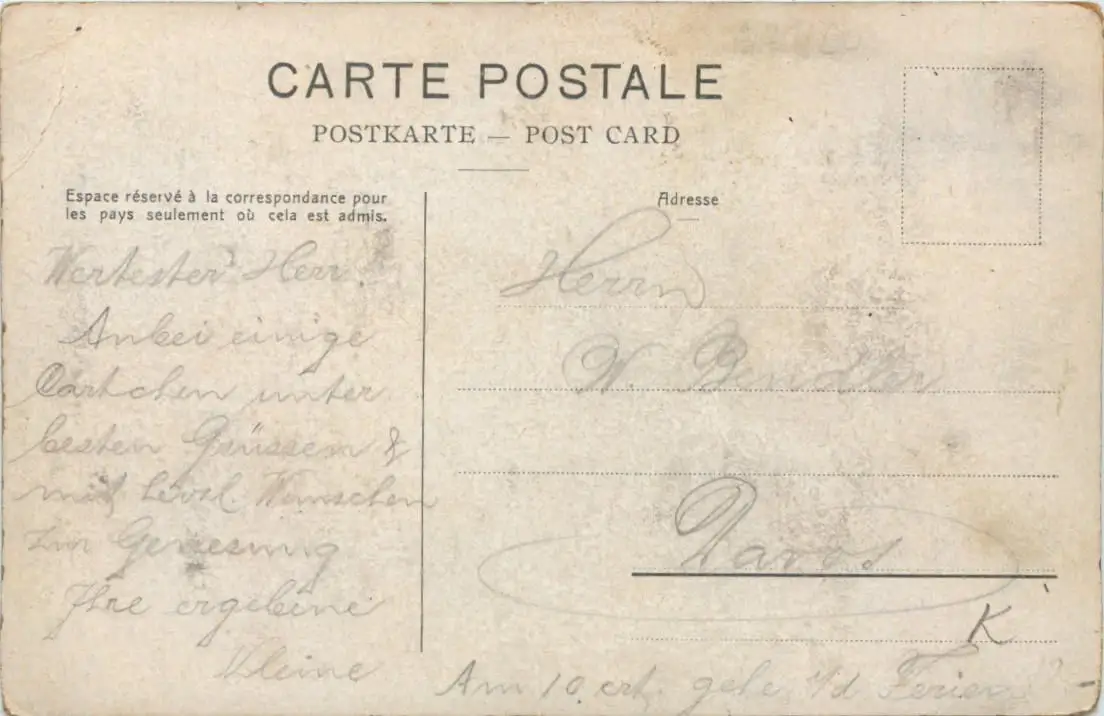 CARTE POSTALE
POSTKARTE — POST CARD
Espace réservé à la correspondance pour
les pays seulement où cela est admis.
Adresse
Wertester Herr!
Anbei einige
Cärtchen unter
besten Grüssen &
mit Wünschen
zur Genesung
Ihre ergebene
Kleine
Herrn
W.
Davos
K
Am 10 crt. gehe i/d Ferien